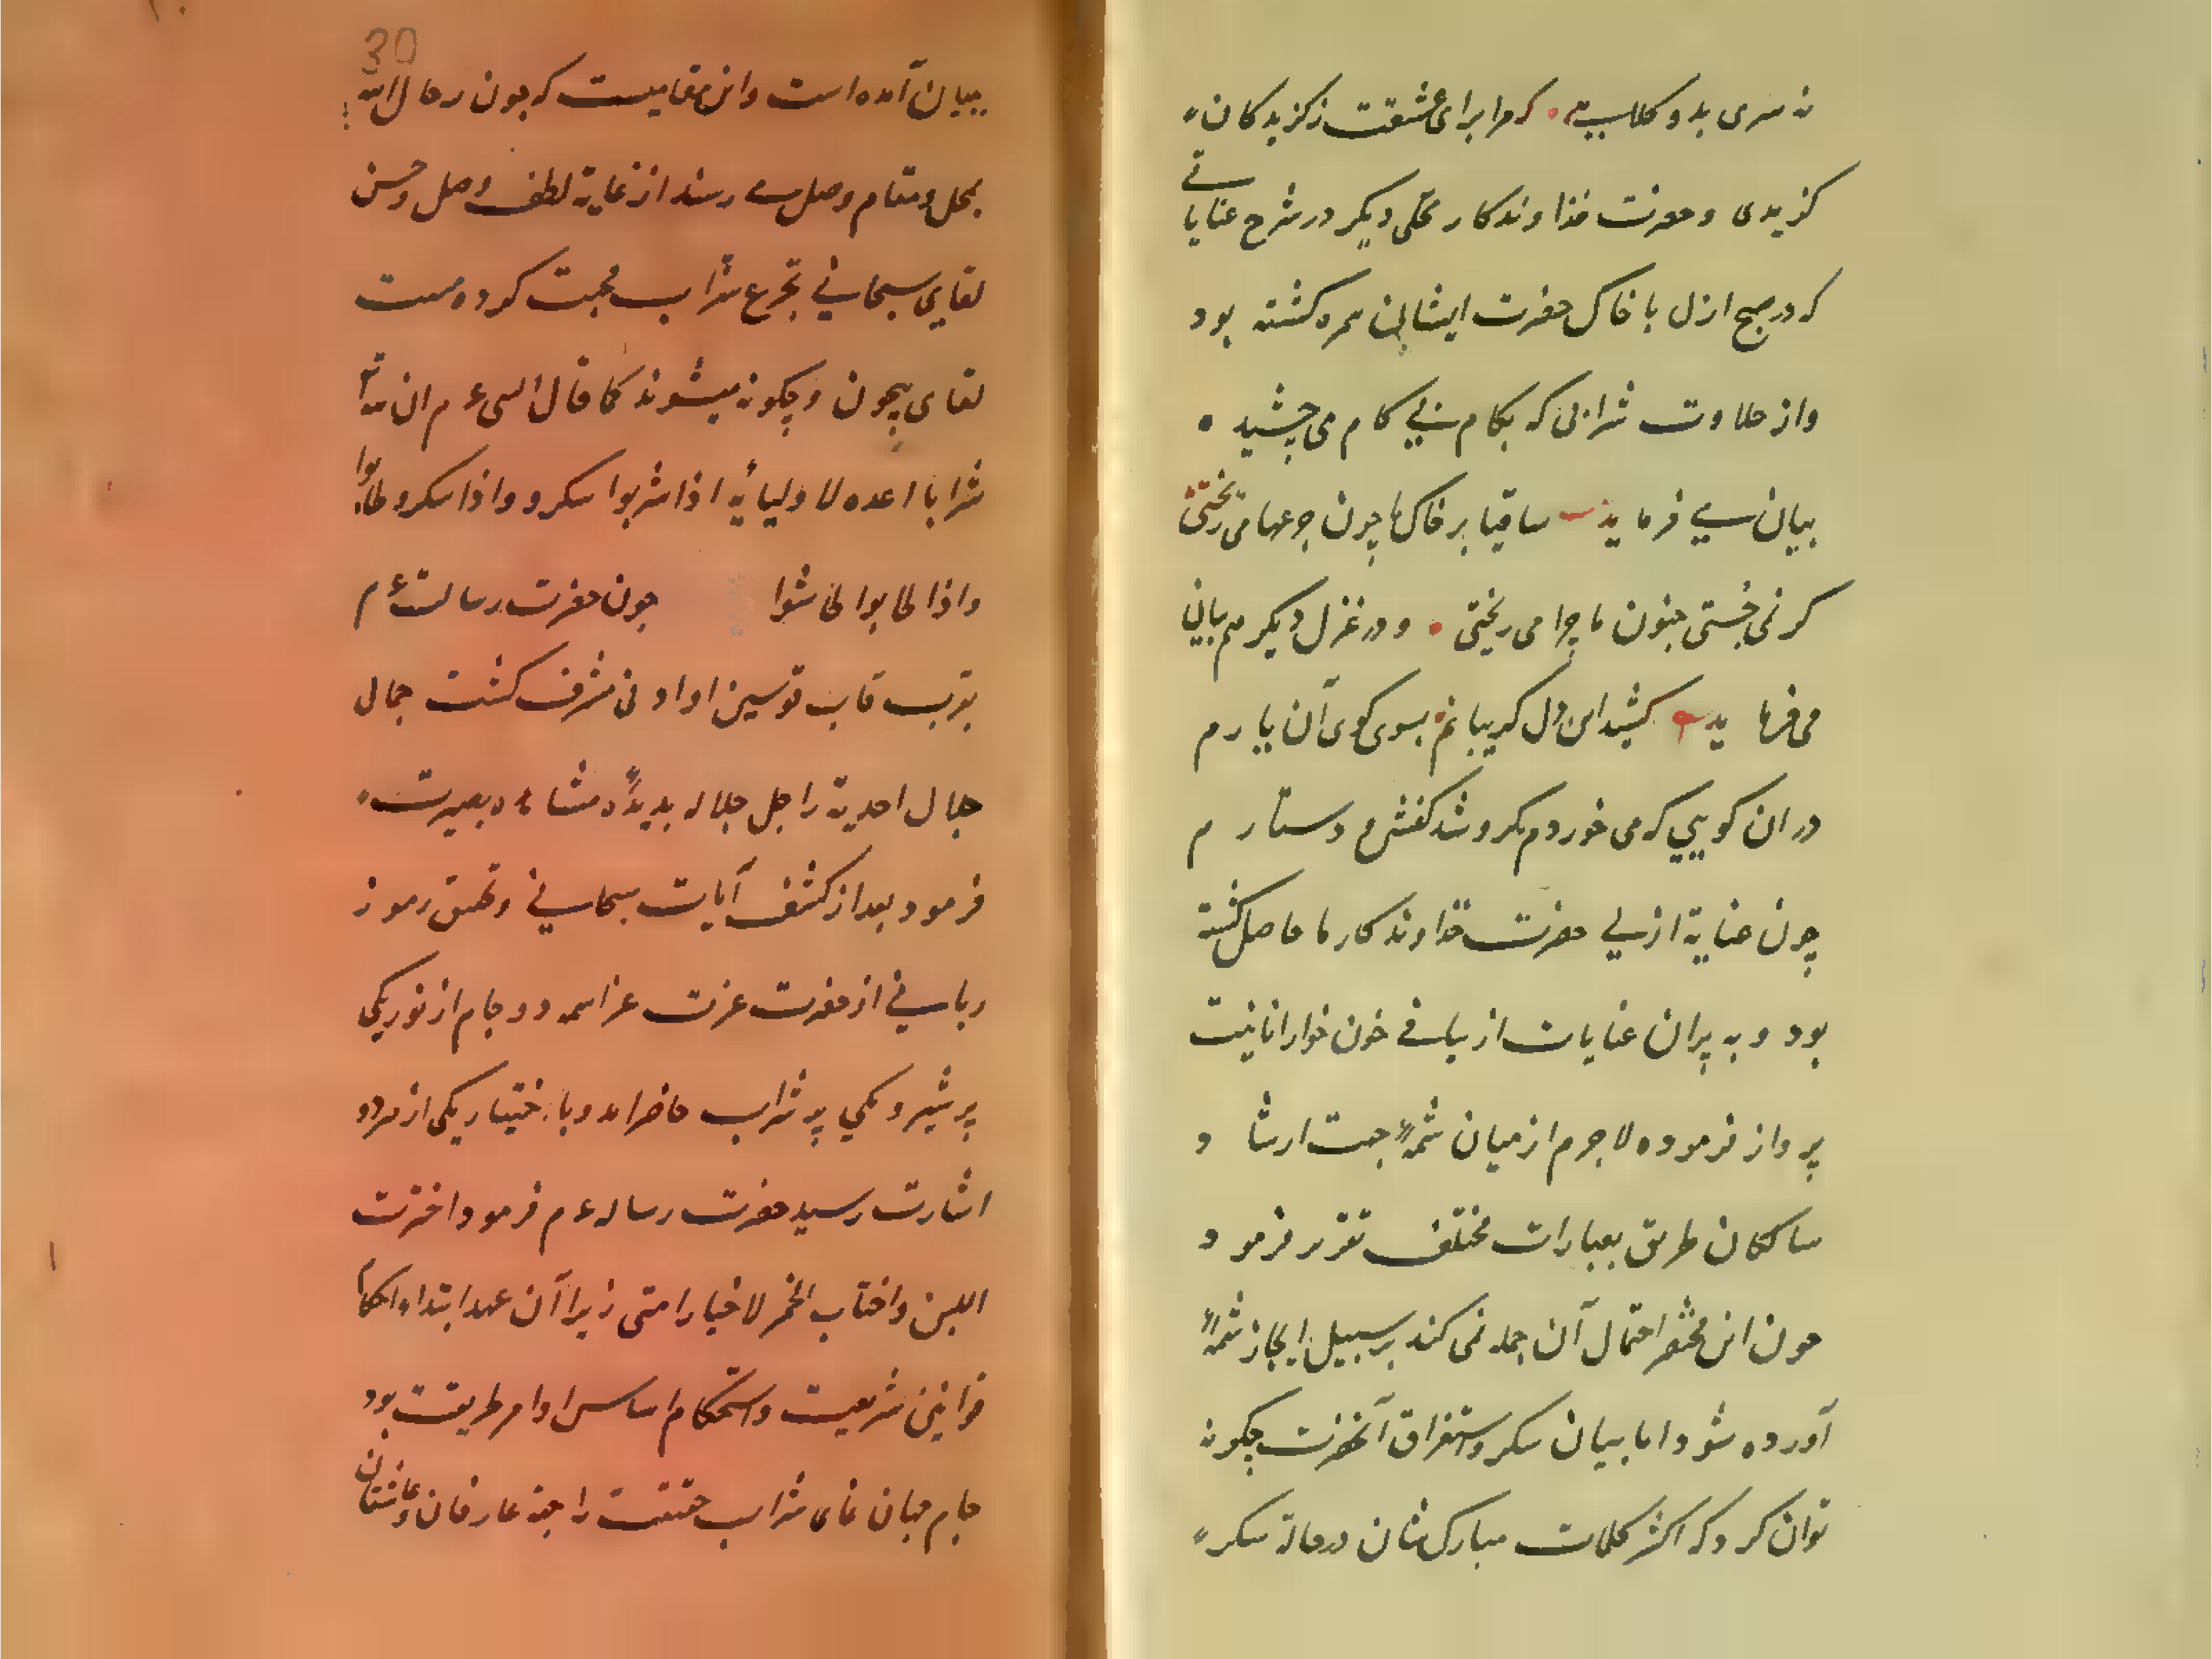 نه سری بدو کلاست • که مرا برای عشقت ز کزیدکان
کزیدی و حضرت خذاوندکار محلی دیکر در شرح عنایاتی
که در صبح ازل با خاک حضرت ایشان همره کشته بود
واز حلاوت شرابی که بکام بی کام می چشید •
بیان می فرماید ساقیا بر خاک ما چون جرعها می ریختی
کر نمی جُستی جنون ما چرا می ریختی • و در غزل دیکر هم بیانی
می فرماید کشید این دل کریبانم بسوی کوی آن یارم
در ان کویی که می خوردم کرو شد کفش و دستارم
چون عنایة ازلی حضرت خذاوندکار ما حاصل کشته
بود و به پران عنایات از خون خوار انانیت
پرواز فرموده لاجرم ازمیان شمهٔ جهت ارشاد
سالکان طریق بعبارات مختلف تقریر فرمود
چون این مختصر احتمال آن جمله نمی کند بر سبیل ایجاز شمهٔ
آورده شود اما بیان سکر و استغراق آنحضرت چکونه
توان کرد که اکثر کلمات مبارکشان در حالة سکر
30
ببیان آمده است واین مقامیست که چون رجال الله
بمحل و مقام وصل می رسند از غایة لطف وصل و حسن
لقایی سبحانی تجرع شراب محبت کرده مست
لقای بیچون و چکونه میشوند کما قال النبی ع م ان لله
شرابا اعده لاولیایه اذا شربوا سکرو واذا سکرو طابوا
واذا طابوا طاشوا چون حضرت رسالت ع م
بقرب قاب قوسین او ادنی مشرف کشت جمال
جلال احدیة را جل جلاله بدیدهٔ مشاهده بصیرت
فرمود بعد از کشف آیات سبحانی و رموز
ربانی از حضرت عزت عز اسمه دو جام از نور یکی
پر شیر و یکی پر شراب حاضر امد و باختیار یکی از هردو
اشارت رسید حضرت رساله ع م فرمود اخترت
اللبن واختاب الخمر لاخیار امتی زیرا آن عهد ابتداء احکام
قوانین شریعت و استحکام اساس اوامر طریقت بود
جام جهان نمای شراب حقیقت را جهة عارفان و عاشقان